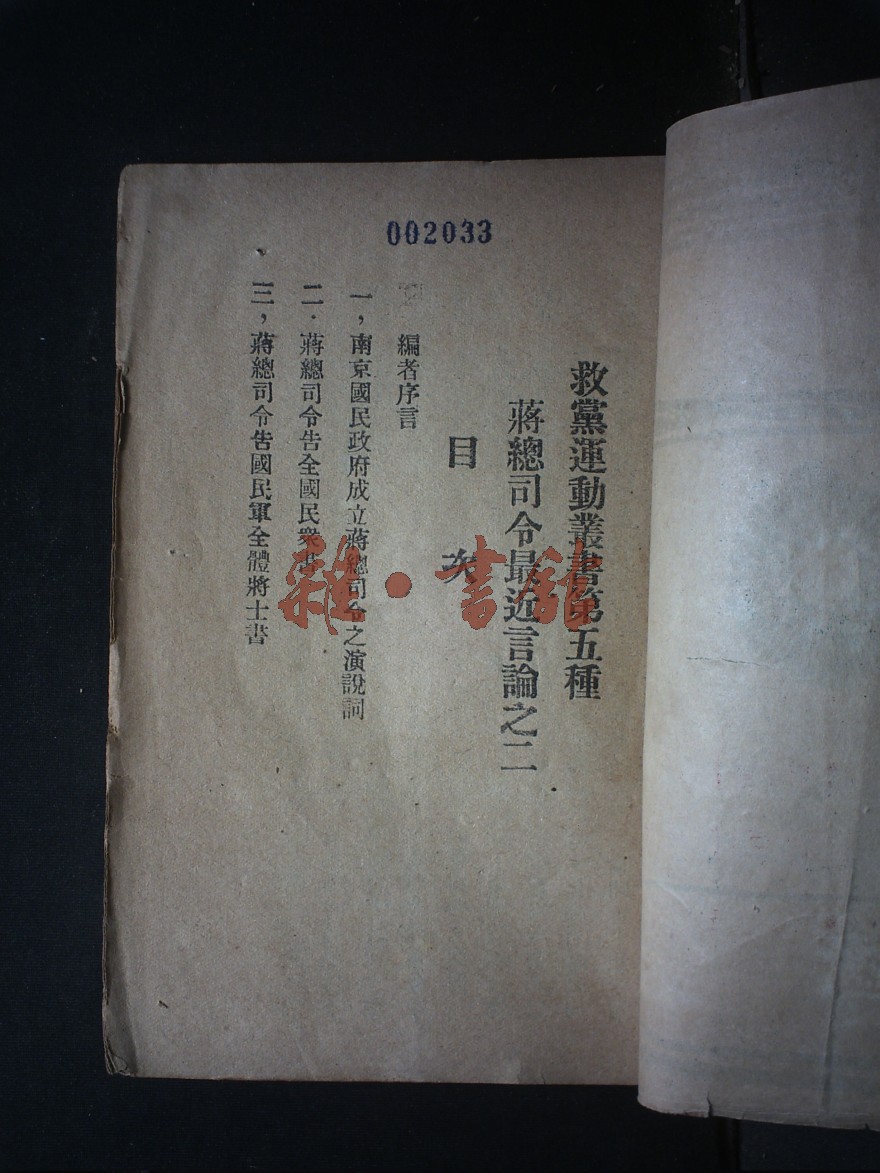 002033
救黨運動叢書第五種
蔣總司令最近言論之二
目次
編者序言
一，南京國民政府成立蔣總司令之演說詞
二．蔣總司令告全國民衆書
三，蔣總司令告國民軍全體將士書
雜·書館